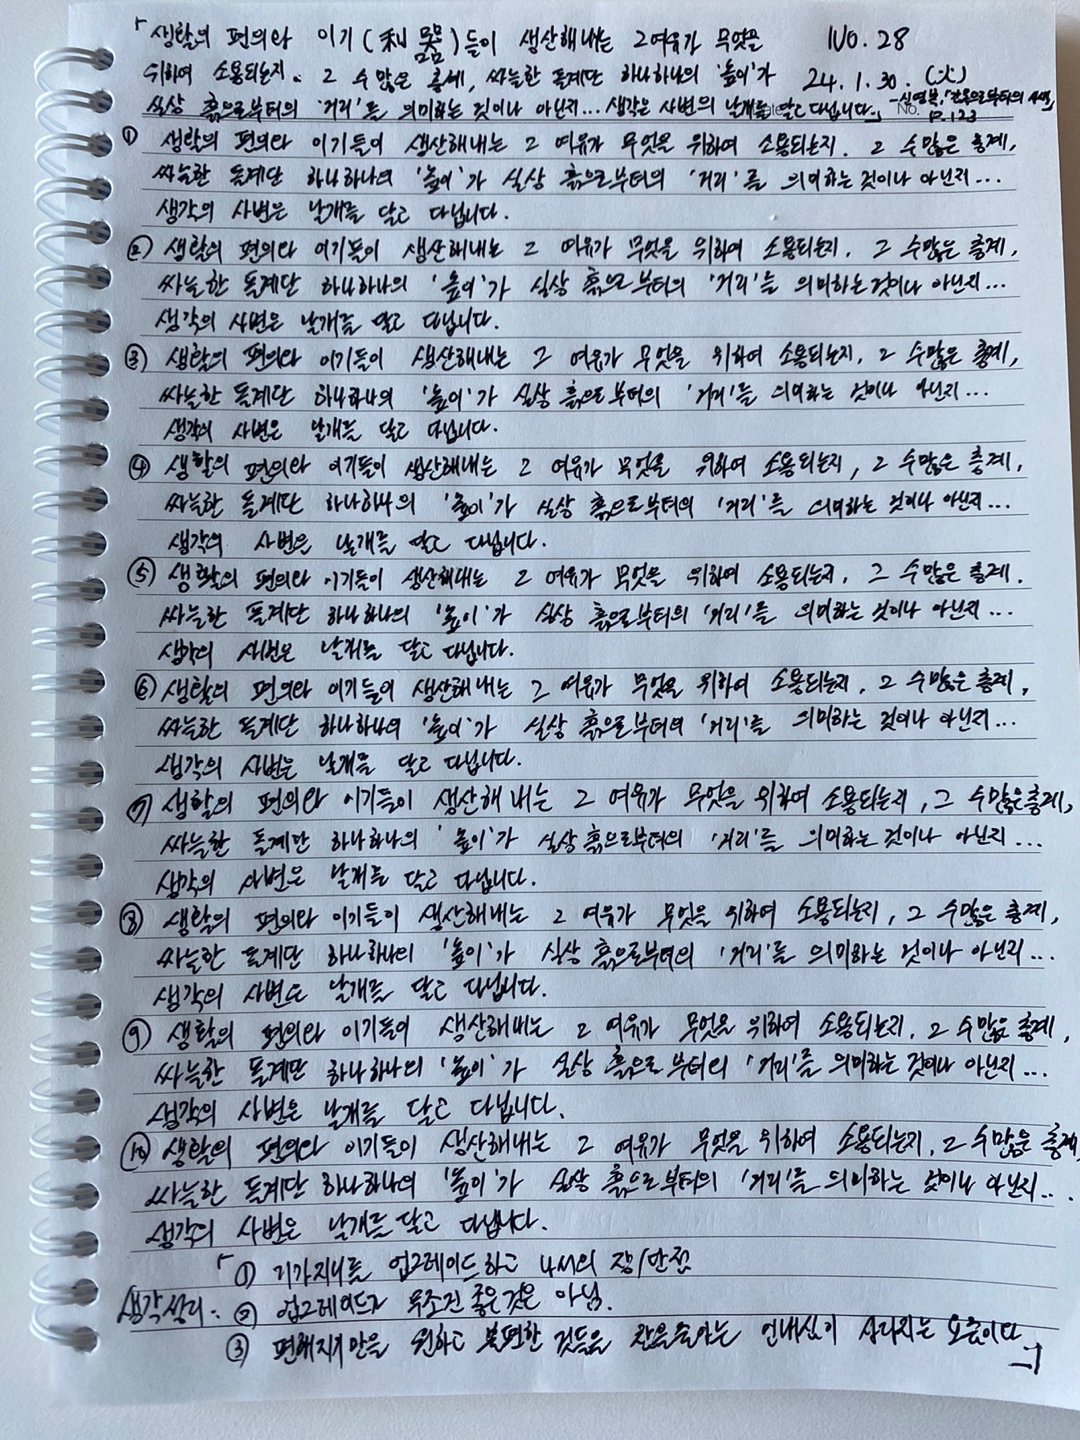 「생활의 편의와 이기(利器)들이 생산해내는 그 여유가 무엇을
NO. 28
위하여 소용되는지. 그 수많은 층계, 싸늘한 돌계단 하나하나의 '높이'가
24. 1. 30. (火)
실상 흙으로부터의 '거리'를 의미하는 것이나 아닌지... 생각은 사변의 날개를 달고 다닙니다.」
- 신영복, 「감옥으로부터의 사색」
P. 123
① 생활의 편의와 이기들이 생산해내는 그 여유가 무엇을 위하여 소용되는지. 그 수많은 층계,
싸늘한 돌계단 하나하나의 '높이'가 실상 흙으로부터의 '거리'를 의미하는 것이나 아닌지...
생각의 사변은 날개를 달고 다닙니다.
② 생활의 편의와 이기들이 생산해내는 그 여유가 무엇을 위하여 소용되는지. 그 수많은 층계,
싸늘한 돌계단 하나하나의 '높이'가 실상 흙으로부터의 '거리'를 의미하는 것이나 아닌지...
생각의 사변은 날개를 달고 다닙니다.
③ 생활의 편의와 이기들이 생산해내는 그 여유가 무엇을 위하여 소용되는지, 그 수많은 층계,
싸늘한 돌계단 하나하나의 '높이'가 실상 흙으로부터의 '거리'를 의미하는 것이나 아닌지...
생각의 사변은 날개를 달고 다닙니다.
④ 생활의 편의와 이기들이 생산해내는 그 여유가 무엇을 위하여 소용되는지, 그 수많은 층계,
싸늘한 돌계단 하나하나의 '높이'가 실상 흙으로부터의 '거리'를 의미하는 것이나 아닌지...
생각의 사변은 날개를 달고 다닙니다.
⑤ 생활의 편의와 이기들이 생산해내는 그 여유가 무엇을 위하여 소용되는지, 그 수많은 층계.
싸늘한 돌계단 하나하나의 '높이'가 실상 흙으로부터의 '거리'를 의미하는 것이나 아닌지...
생각의 사변은 날개를 달고 다닙니다.
⑥ 생활의 편의와 이기들이 생산해내는 그 여유가 무엇을 위하여 소용되는지, 그 수많은 층계,
싸늘한 돌계단 하나하나의 '높이'가 실상 흙으로부터의 '거리'를 의미하는 것이나 아닌지...
생각의 사변는 날개를 달고 다닙니다.
⑦ 생활의 편의와 이기들이 생산해내는 그 여유가 무엇을 위하여 소용되는지, 그 수많은 층계,
싸늘한 돌계단 하나하나의 '높이'가 실상 흙으로부터의 '거리'를 의미하는 것이나 아닌지...
생각의 사변은 날개를 달고 다닙니다.
⑧ 생활의 편의와 이기들이 생산해내는 그 여유가 무엇을 위하여 소용되는지, 그 수많은 층계,
싸늘한 돌계단 하나하나의 '높이'가 실상 흙으로부터의 '거리'를 의미하는 것이나 아닌지...
생각의 사변은 날개를 달고 다닙니다.
⑨ 생활의 편의와 이기들이 생산해내는 그 여유가 무엇을 위하여 소용되는지. 그 수많은 층계,
싸늘한 돌계단 하나하나의 '높이'가 실상 흙으로부터의 '거리'를 의미하는 것이나 아닌지...
생각의 사변은 날개를 달고 다닙니다.
⑩ 생활의 편의와 이기들이 생산해내는 그 여유가 무엇을 위하여 소용되는지, 그 수많은 층계,
싸늘한 돌계단 하나하나의 '높이'가 실상 흙으로부터의 '거리'를 의미하는 것이나 아닌지...
생각의 사변은 날개를 달고 다닙니다.
「① 기가지니를 업그레이드 하고 나서의 장/단점
생각정리. ② 업그레이드가 무조건 좋은 것은 아님.
③ 편해지기만을 원하고 불편한 것들은 참을줄아는 인내심이 사라지는 요즘이다.」